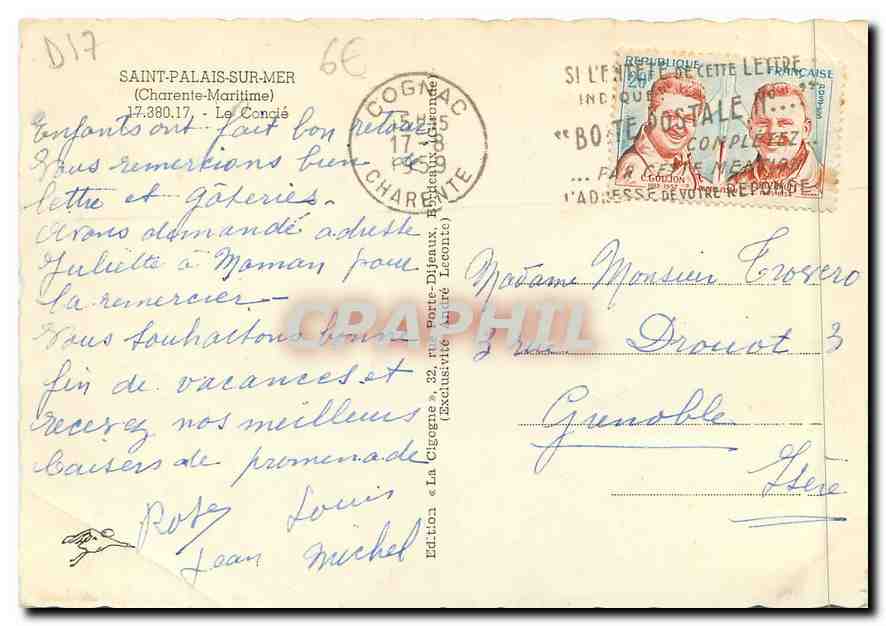 D17
6€
SAINT-PALAIS-SUR-MER
(Charente-Maritime)
17.380.17. - Le Concié
Enfants ont fait bon retour
Vous remercions bien de
lettre et gâteries.
Avons demandé adresse
Juliette à Maman pour
la remercier -
Vous souhaitons bonne
fin de vacances et
recevez nos meilleurs
baisers de promenade
Rose Louis
Jean Michel
COGNAC
17-8
CHARENTE
SI L'ENTETE DE CETTE LETTRE
INDIQUE
"BOITE POSTALE No..."
COMPLETEZ...
...PAR CETTE MENTION
L'ADRESSE DE VOTRE REPONSE
REPUBLIQUE FRANÇAISE
20F
GOUJON
Edition « La Cigogne », 32, rue Porte-Dijeaux, Bordeaux (Gironde).
(Exclusivité André Leconte)
Madame Monsieur
3 rue Drouot 3
Grenoble
Isère
CPAPHIL